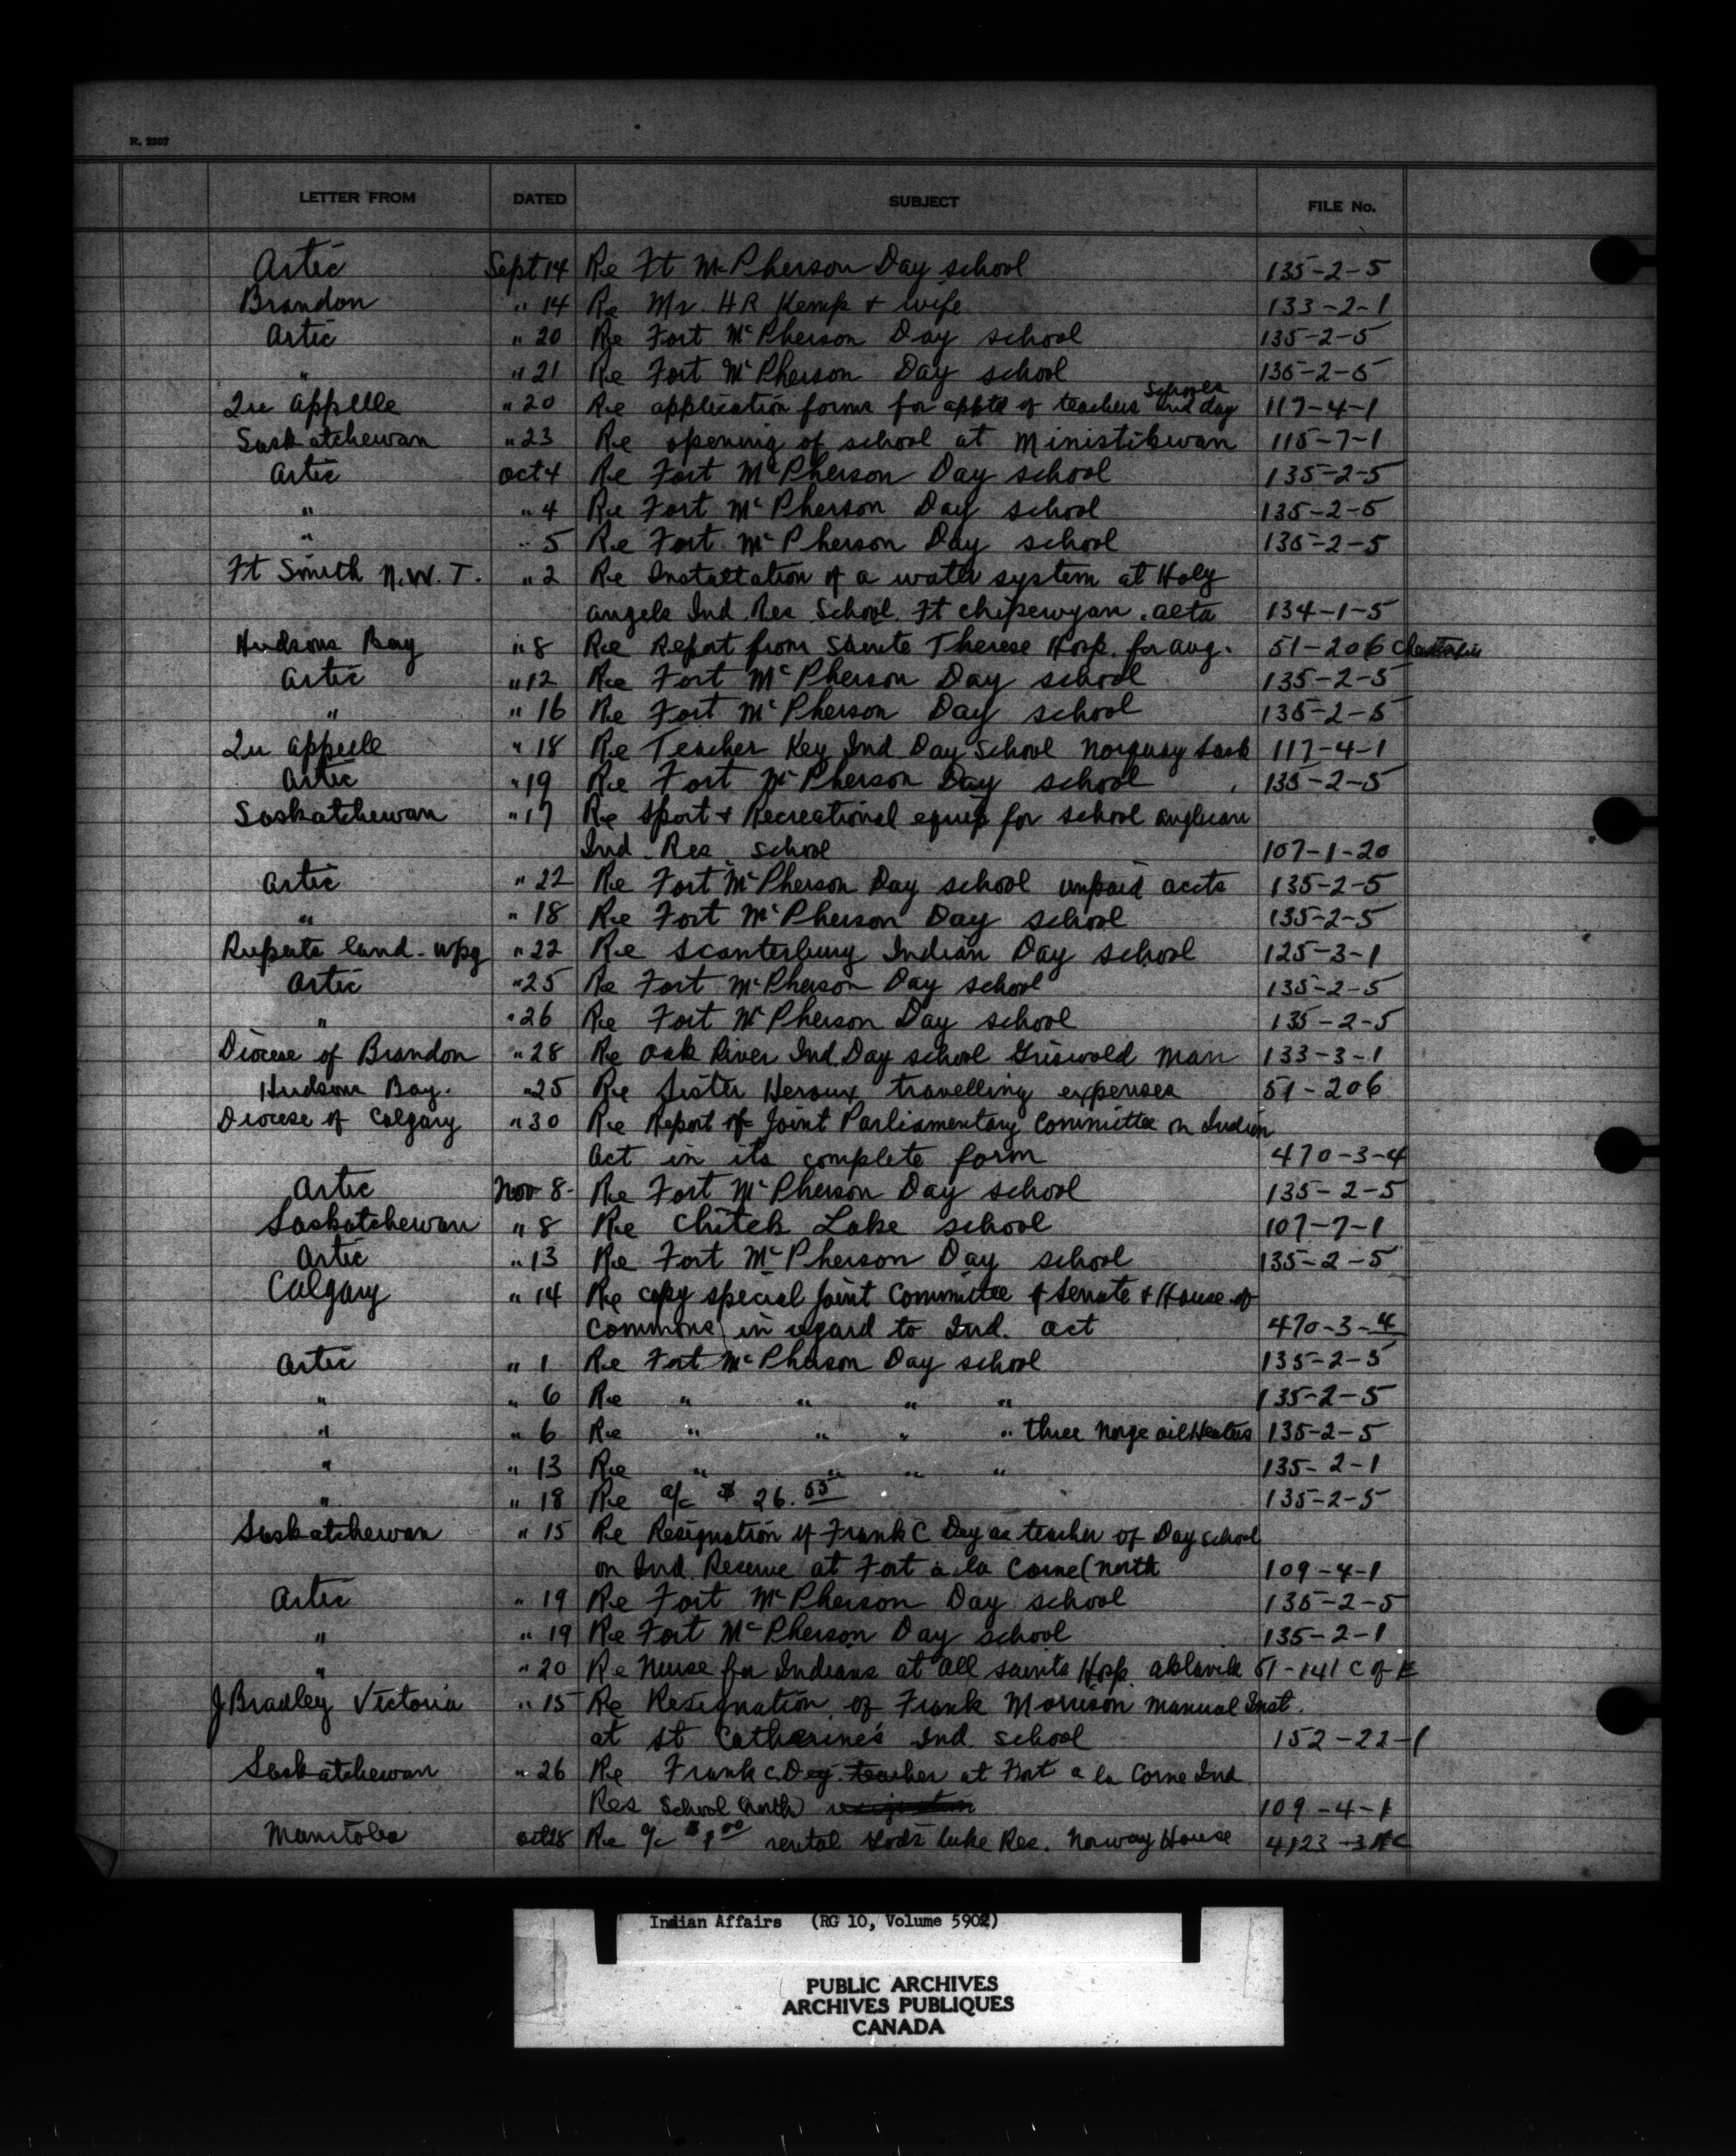 R. 2307
LETTER FROM DATED SUBJECT FILE No.
Artic Sept 14 Re Ft McPherson Day school 135-2-5
Brandon " 14 Re Mr. H R Kemp + wife 133-2-1
Artic " 20 Re Fort McPherson Day school 135-2-5
" " 21 Re Fort McPherson Day school 135-2-5
Qu Appelle " 20 Re application forms for apptd of teachers Schools and day 117-4-1
Saskatchewan " 23 Re opening of school at Ministikwan 115-7-1
Artic Oct 4 Re Fort McPherson Day school 135-2-5
" " 4 Re Fort McPherson Day school 135-2-5
" " 5 Re Fort McPherson Day school 135-2-5
Ft Smith N.W.T. " 2 Re Installation of a water system at Holy
angels Ind. Res School. Ft chipewyan. alta 134-1-5
Hudsons Bay " 8 Re Report from Sainte Therese Hosp. for aug. 51-206
Artic " 12 Re Fort McPherson Day school 135-2-5
" " 16 Re Fort McPherson Day school 135-2-5
Qu Appelle " 18 Re Teacher Key Ind. Day School Norquay Sask 117-4-1
Artic " 19 Re Fort McPherson Day school 135-2-5
Saskatchewan " 17 Re Sport + Recreational equip for school anglican
Ind. Res. school 107-1-20
Artic " 22 Re Fort McPherson Day school unpaid accts 135-2-5
" " 18 Re Fort McPherson Day school 135-2-5
Ruperts land - Wpg " 22 Re Scanterbury Indian Day school 125-3-1
Artic " 25 Re Fort McPherson Day school 135-2-5
" " 26 Re Fort McPherson Day school 135-2-5
Diocese of Brandon " 28 Re Oak River Ind. Day school Griswold Man 133-3-1
Hudson Bay. " 25 Re Sister Heroux travelling expenses 51-206
Diocese of Calgary " 30 Re Report of Joint Parliamentary Committee on Indian
Act in its complete form 470-3-4
Artic Nov 8- Re Fort McPherson Day school 135-2-5
Saskatchewan " 8 Re Chitek Lake school 107-7-1
Artic " 13 Re Fort McPherson Day school 135-2-5
Calgary " 14 Re copy special joint Committee of Senate + House of
Commons in regard to Ind. act 470-3-4
Artic " 1 Re Fort McPherson Day school 135-2-5
" " 6 Re " " " " 135-2-5
" " 6 Re " " " " three Norge oil Heaters 135-2-5
" " 13 Re " " " " 135-2-1
" " 18 Re a/c $ 26.55 135-2-5
Saskatchewan " 15 Re Resignation of Frank C Day as teacher of Day school
on Ind. Reserve at Fort a la Corne (north 109-4-1
Artic " 19 Re Fort McPherson Day school 135-2-5
" " 19 Re Fort McPherson Day school 135-2-1
" " 20 Re Nurse for Indians at All Saints Hosp. Aklavik 51-141 C of E
J Bradley Victoria " 15 Re Resignation of Frank Morrison Manual Inst.
at St Catherine's Ind. school 152-22-1
Saskatchewan " 26 Re Frank C. Day teacher at Fort a la Corne Ind.
Res School (north) 109-4-1
Manitoba Oct 28 Re a/c $1.00 rental Gods Lake Res. Norway House
Indian Affairs (RG 10, Volume 5902)
PUBLIC ARCHIVES
ARCHIVES PUBLIQUES
CANADA